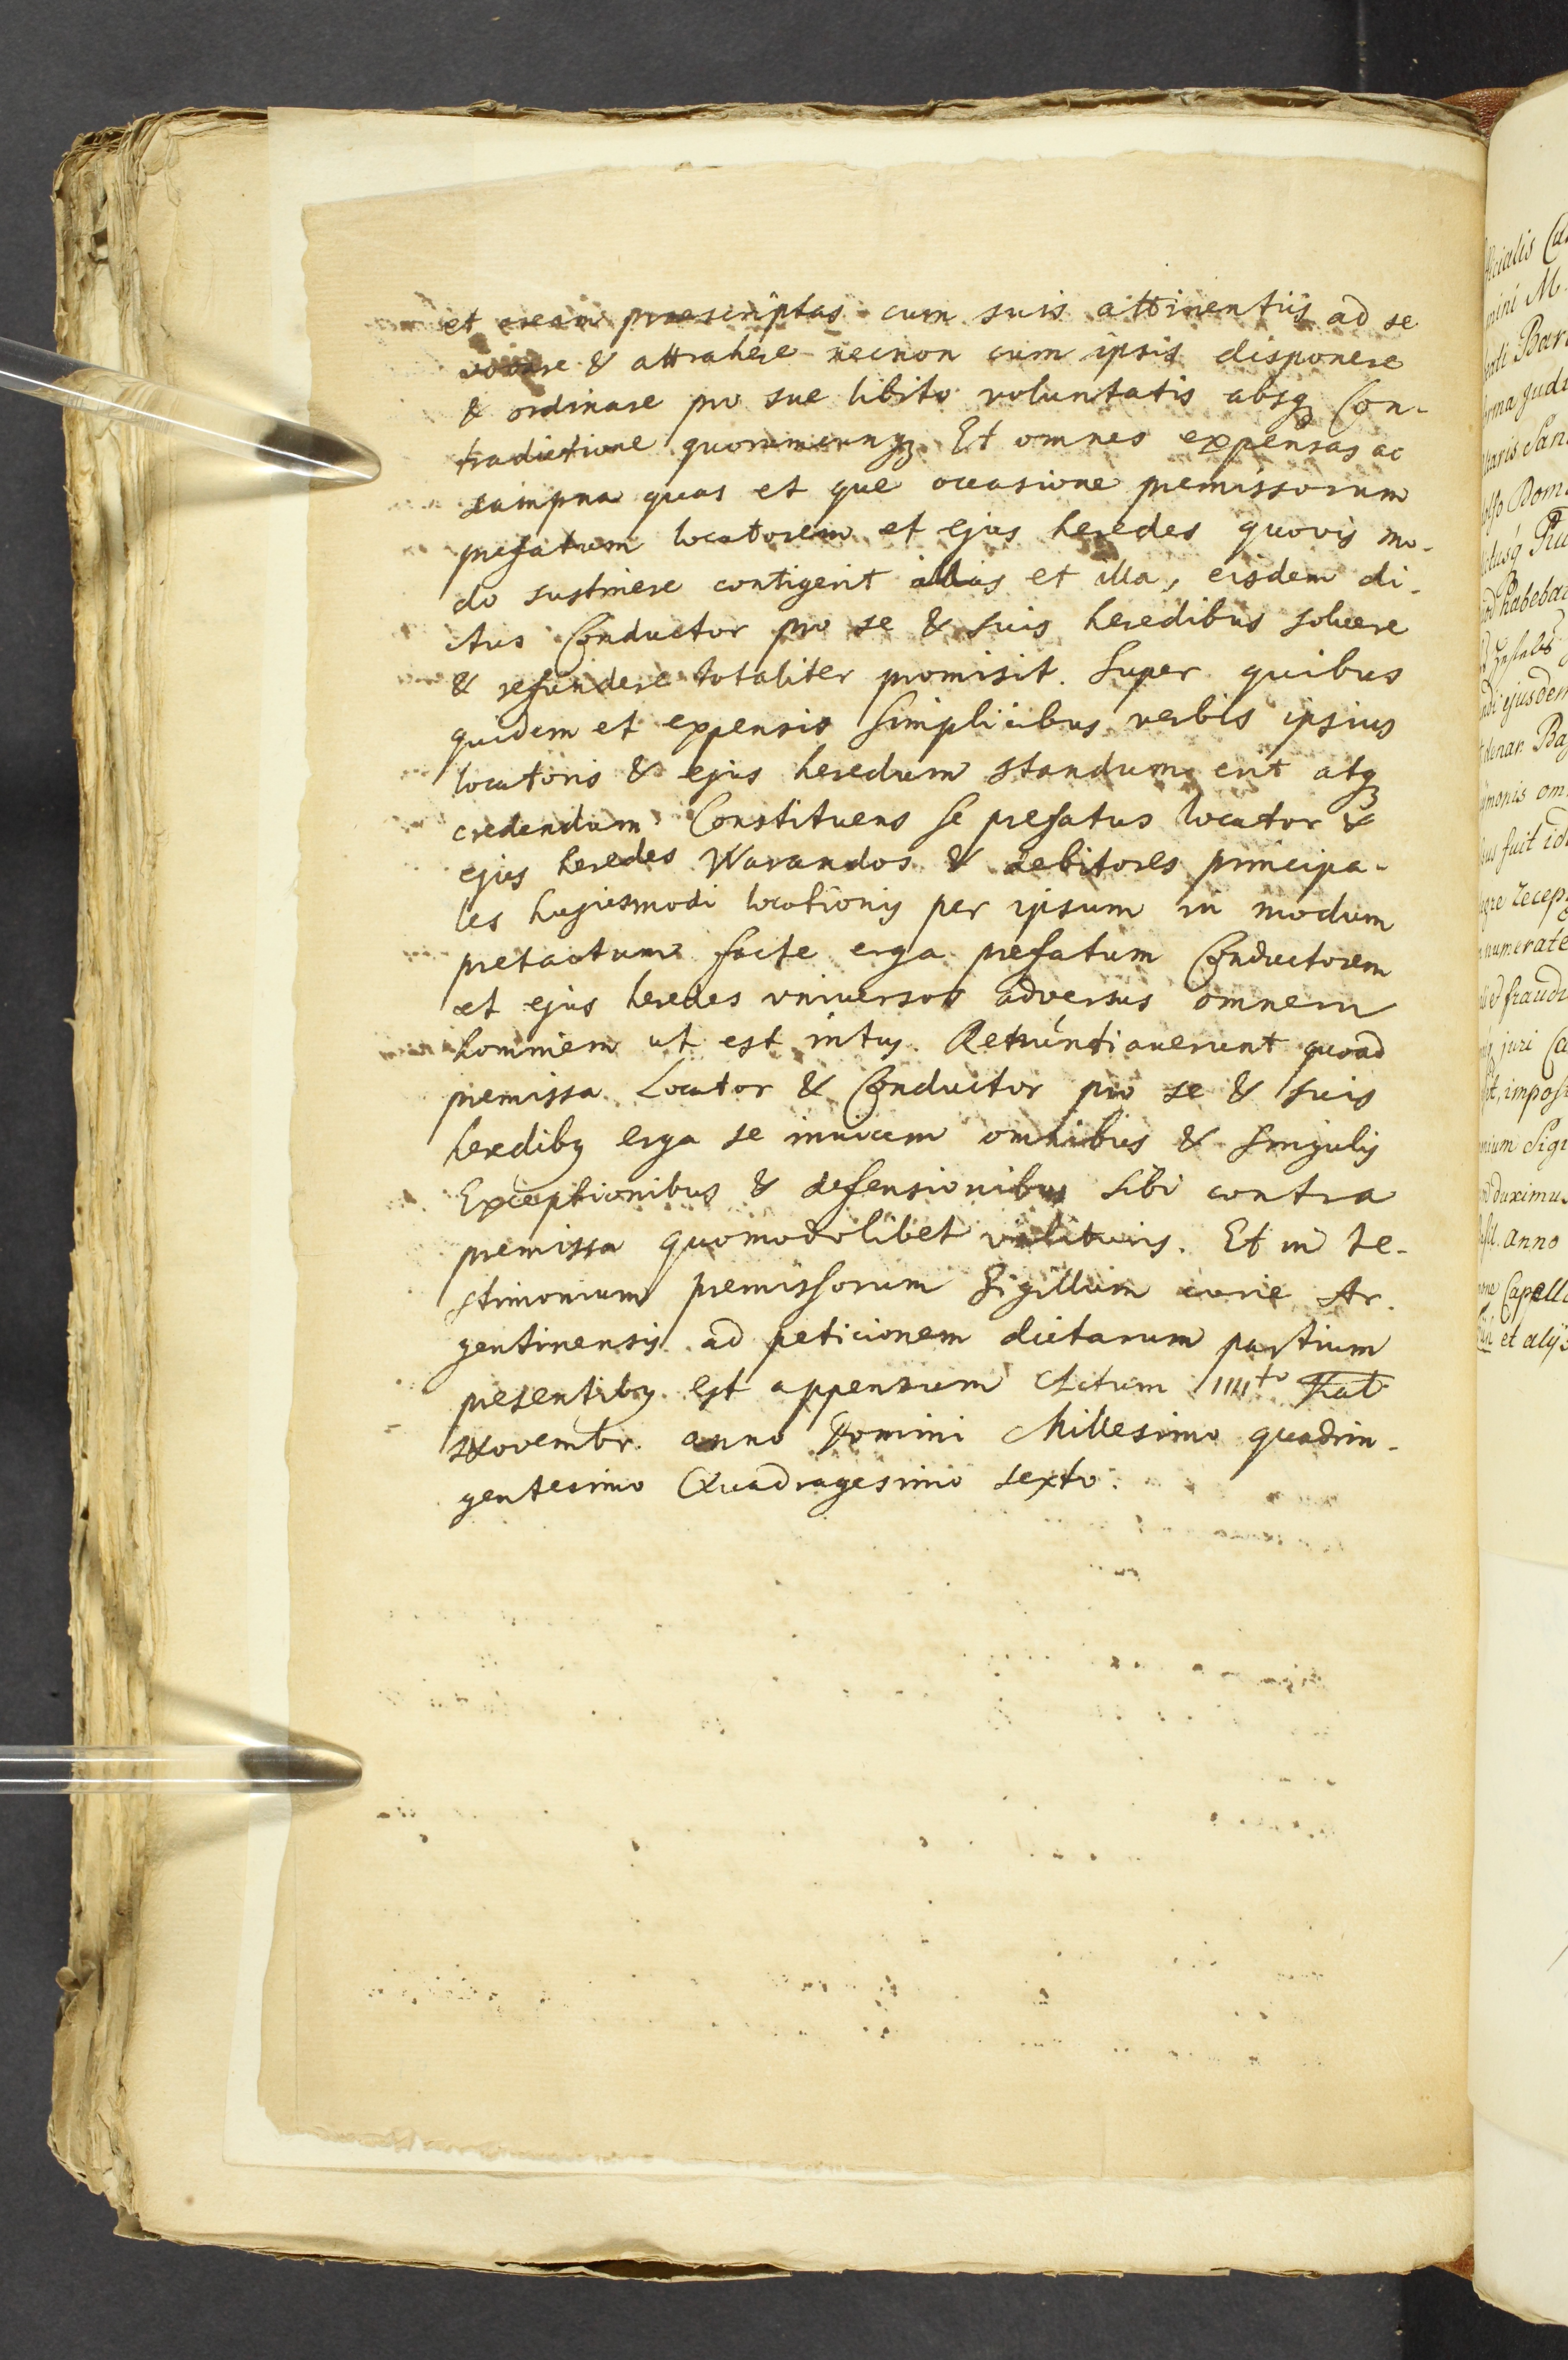 et aream praescriptas cum suis attinentiis ad se
vocare & attrahere necnon cum ipsis disponere
& ordinare pro sue libito voluntatis absq Con-
tradictione quorumcunq Et omnes expensas ac
dampna quas et que occasione premissorum
prefatum locatorem et ejus heredes quovis mo-
do sustinere contigerit illas et illa, eisdem di-
ctus Conductor pro se & suis heredibus soluere
& refundere totaliter promisit. Super quibus
quidem et expensis simplicibus verbis ipsius
locatoris & ejus heredum standum erit atq
credendum Constituens se prefatus locator &
ejus heredes Warandos & debitores principa-
les hujusmodi locationis per ipsum in modum
pretactum facte erga prefatum Conductorem
et ejus heredes vniuersos adversus omnem
hominem ut est intus. Renuntiauerunt quoad
premissa Locator & Conductor pro se & suis
heredibq erga se inuicem omnibus & singulis
Exceptionibus & defensionibus sibi contra
premissa quomodolibet valituris. Et in te-
stimonium premissorum Sigillum curie Ar-
gentinensis ad peticionem dictarum partium
presentibq est appensum Actum IIIIto Kal
Novembr. anno Domini Millesimo quadrin-
gentesimo Quadragesimo sexto.
ficialis
mini M.
forma
claris San
Dom
habebat
ejusdem
denar. Ba
monis om
fuit
recep
numerate
et fraud
juri Ca
impos
Sigi
duximus
anno
Capell
et alijs